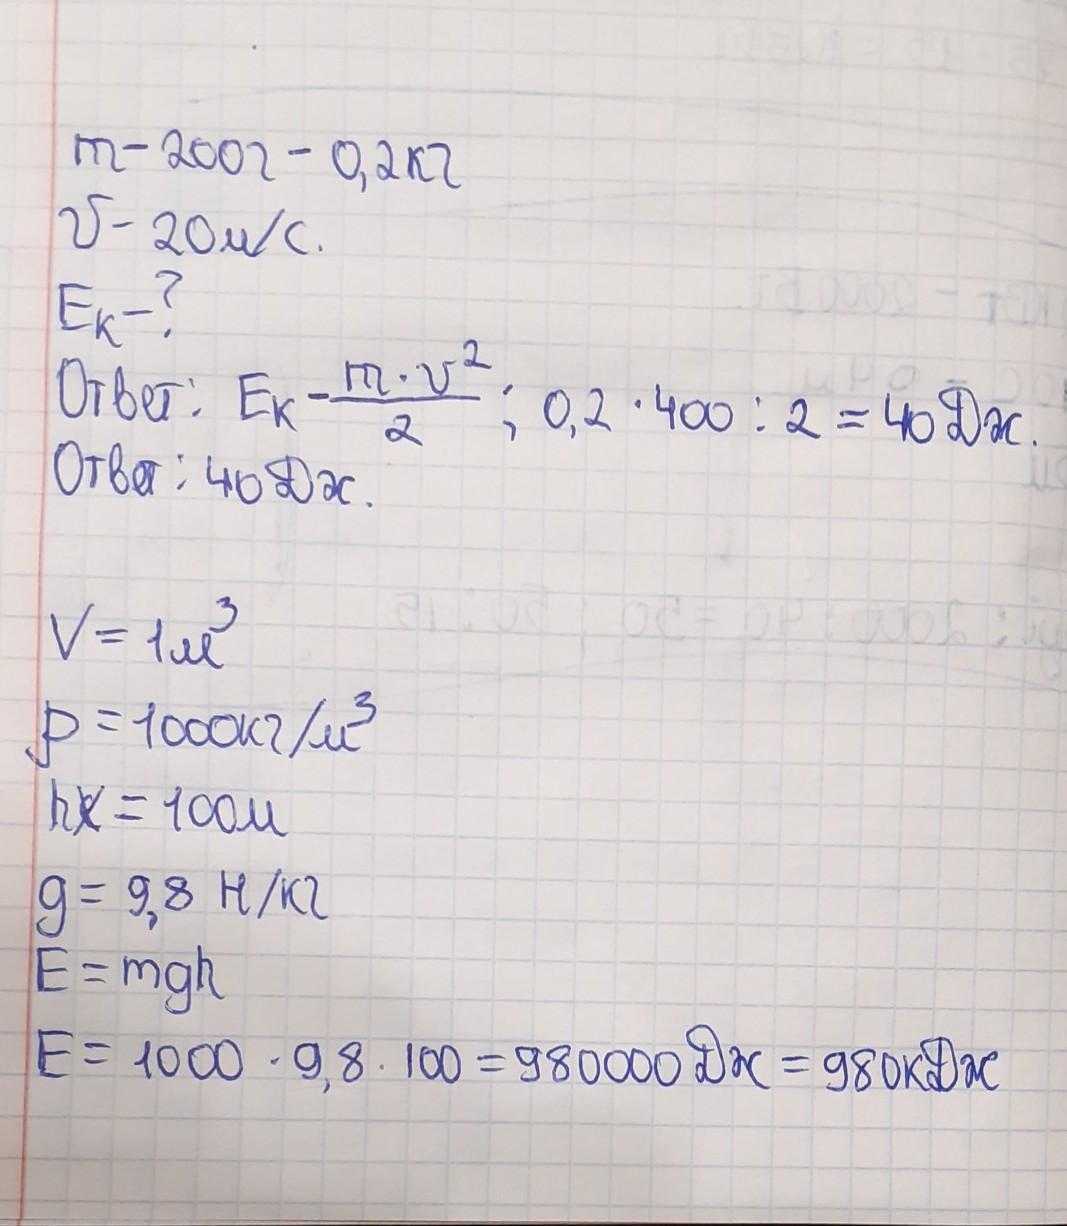 m - 200г - 0,2кг
V - 20м/с.
Eк - ?
Ответ: Eк - m · v² / 2 ; 0,2 · 400 : 2 = 40 Дж.
Ответ: 40 Дж.
V = 1м³
p = 1000кг/м³
h = 100м
g = 9,8 Н/кг
E = mgh
E = 1000 · 9,8 · 100 = 980000 Дж = 980кДж